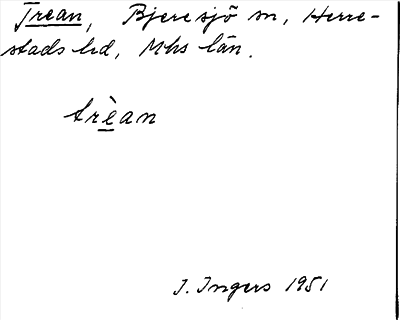 Trean, Bjeresjö sn, Herre-
stads hd, Mhs län.
trèan
I. Ingers 1951